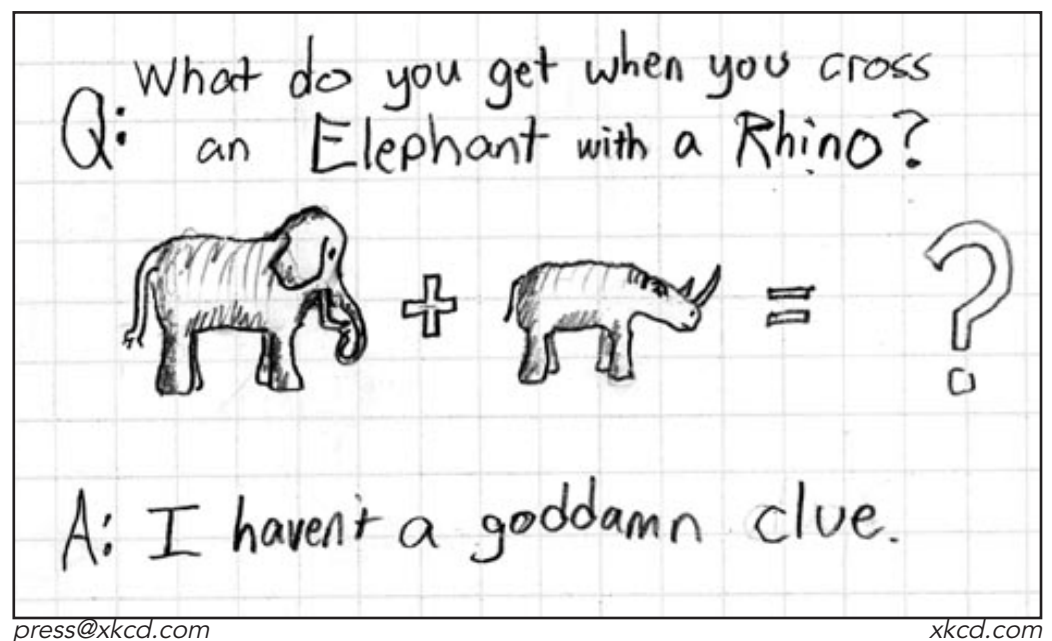 Q: What do you get when you cross
an Elephant with a Rhino?
+ = ?
A: I haven't a goddamn clue.
press@xkcd.com xkcd.com